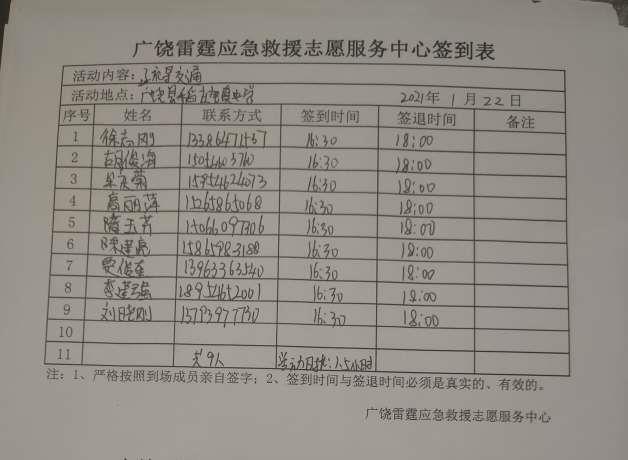 广饶雷霆应急救援志愿服务中心签到表
活动内容：交通
活动地点：广饶县
2021年 1 月 22 日
序号 姓名 联系方式 签到时间 签退时间 备注
1 徐志刚 13386471537 16:30 18:00
2 胡俊海 16:30 18:00
3 15954624073 16:30 18:00
4 高丽萍 15265865068 16:30 18:00
5 隋玉芳 15066097306 16:30 18:00
6 陈建亮 15865983188 16:30 18:00
7 贾俊奎 13963363540 16:30 18:00
8 李建强 18954652001 16:30 18:00
9 刘晓刚 16:30 18:00
10
11 共9人 1.5小时
注：1、严格按照到场成员亲自签字；2、签到时间与签退时间必须是真实的、有效的。
广饶雷霆应急救援志愿服务中心